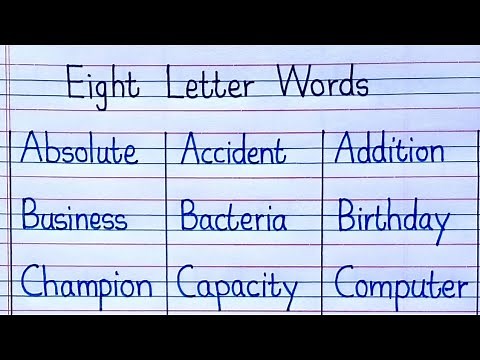 Eight Letter Words
Absolute Accident Addition
Business Bacteria Birthday
Champion Capacity Computer